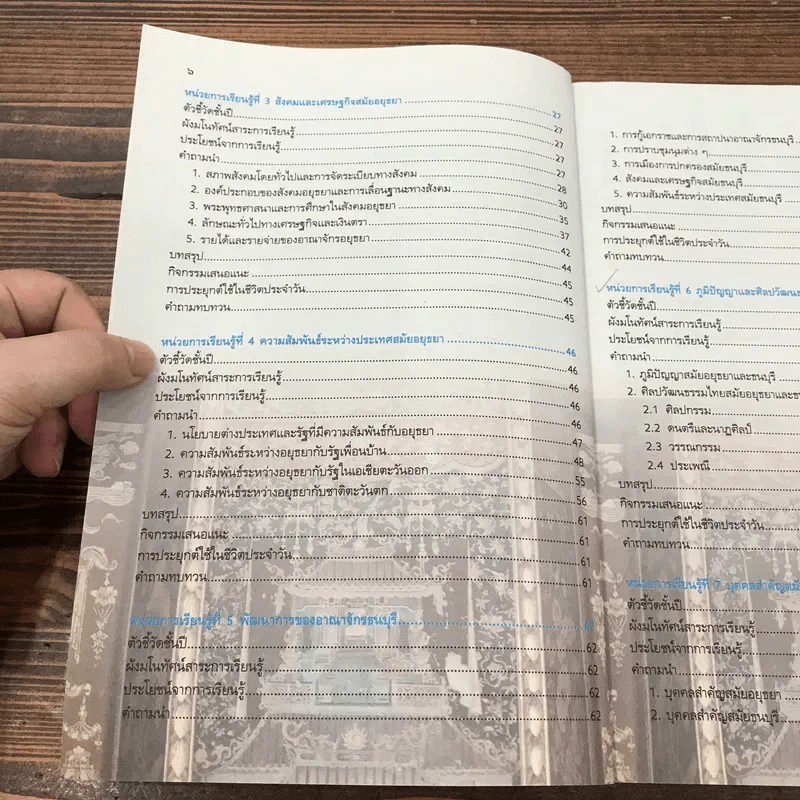 ๖
หน่วยการเรียนรู้ที่ 3 สังคมและเศรษฐกิจสมัยอยุธยา ........ 27
ตัวชี้วัดชั้นปี ........ 27
ผังมโนทัศน์สาระการเรียนรู้ ........ 27
ประโยชน์จากการเรียนรู้ ........ 27
คำถามนำ ........ 27
1. สภาพสังคมโดยทั่วไปและการจัดระเบียบทางสังคม ........ 28
2. องค์ประกอบของสังคมอยุธยาและการเลื่อนฐานะทางสังคม ........ 30
3. พระพุทธศาสนาและการศึกษาในสังคมอยุธยา ........ 35
4. ลักษณะทั่วไปทางเศรษฐกิจและเงินตรา ........ 37
5. รายได้และรายจ่ายของอาณาจักรอยุธยา ........ 42
บทสรุป ........ 44
กิจกรรมเสนอแนะ ........ 45
การประยุกต์ใช้ในชีวิตประจำวัน ........ 45
คำถามทบทวน ........ 45
หน่วยการเรียนรู้ที่ 4 ความสัมพันธ์ระหว่างประเทศสมัยอยุธยา ........ 46
ตัวชี้วัดชั้นปี ........ 46
ผังมโนทัศน์สาระการเรียนรู้ ........ 46
ประโยชน์จากการเรียนรู้ ........ 46
คำถามนำ ........ 46
1. นโยบายต่างประเทศและรัฐที่มีความสัมพันธ์กับอยุธยา ........ 47
2. ความสัมพันธ์ระหว่างอยุธยากับรัฐเพื่อนบ้าน ........ 48
3. ความสัมพันธ์ระหว่างอยุธยากับรัฐในเอเชียตะวันออก ........ 55
4. ความสัมพันธ์ระหว่างอยุธยากับชาติตะวันตก ........ 56
บทสรุป ........ 61
กิจกรรมเสนอแนะ ........ 61
การประยุกต์ใช้ในชีวิตประจำวัน ........ 61
คำถามทบทวน ........ 61
หน่วยการเรียนรู้ที่ 5 พัฒนาการของอาณาจักรธนบุรี ........ 62
ตัวชี้วัดชั้นปี ........ 62
ผังมโนทัศน์สาระการเรียนรู้ ........ 62
ประโยชน์จากการเรียนรู้ ........ 62
คำถามนำ ........ 62
1. การกู้เอกราชและการสถาปนาอาณาจักรธนบุรี
2. การปราบชุมนุมต่าง ๆ
3. การเมืองการปกครองสมัยธนบุรี
4. สังคมและเศรษฐกิจสมัยธนบุรี
5. ความสัมพันธ์ระหว่างประเทศสมัยธนบุรี
บทสรุป
กิจกรรมเสนอแนะ
การประยุกต์ใช้ในชีวิตประจำวัน
คำถามทบทวน
หน่วยการเรียนรู้ที่ 6 ภูมิปัญญาและศิลปวัฒนธ
ตัวชี้วัดชั้นปี
ผังมโนทัศน์สาระการเรียนรู้
ประโยชน์จากการเรียนรู้
คำถามนำ
1. ภูมิปัญญาสมัยอยุธยาและธนบุรี
2. ศิลปวัฒนธรรมไทยสมัยอยุธยาและธน
2.1 ศิลปกรรม
2.2 ดนตรีและนาฏศิลป์
2.3 วรรณกรรม
2.4 ประเพณี
บทสรุป
กิจกรรมเสนอแนะ
การประยุกต์ใช้ในชีวิตประจำวัน
คำถามทบทวน
หน่วยการเรียนรู้ที่ 7 บุคคลสำคัญสมั
ตัวชี้วัดชั้นปี
ผังมโนทัศน์สาระการเรียนรู้
ประโยชน์จากการเรียนรู้
คำถามนำ
1. บุคคลสำคัญสมัยอยุธยา
2. บุคคลสำคัญสมัยธนบุรี